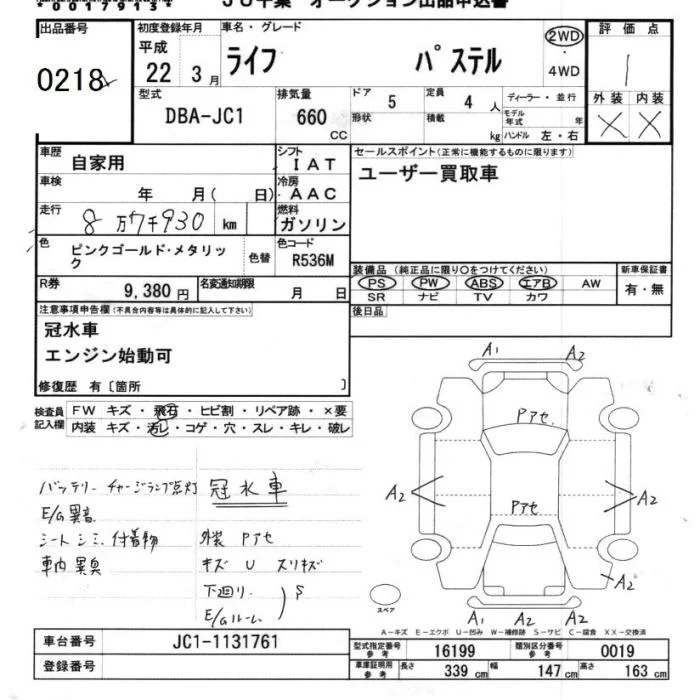 JU千葉 オークション出品申込書
出品番号 初度登録年月 車名・グレード 2WD 評価点
平成 22 3月 ライフ パステル 4WD 1
0218
型式 DBA-JC1 排気量 660 CC ドア 5 定員 4人 ディーラー・並行 外装 内装
形状 積載 kg モデル年式 年 × ×
ハンドル 左・右
車歴 自家用 シフト IAT セールスポイント(正常に機能するものに限ります)
車検 年 月( 日) 冷房 AAC ユーザー買取車
走行 8万7千930 km 燃料 ガソリン
色 ピンクゴールド・メタリック 色替 色コード R536M
装備品(純正品に限り○をつけてください) 新車保証書
R券 9,380円 名変通知期限 月 日 PS PW ABS エアB AW 有・無
SR ナビ TV カワ
注意事項申告欄(不具合内容等は具体的に記入して下さい) 後日品
冠水車
エンジン始動可
修復歴 有〔箇所 〕
A1 A2
検査員記入欄 FW キズ・飛石・ヒビ割・リペア跡・×要
内装 キズ・汚レ・コゲ・穴・スレ・キレ・破レ
Pアセ
バッテリー チャージランプ点灯 冠水車
A2 Pアセ A2
E/G異音
シート シミ、付着物 外装 Pアセ
車内 異臭 キズ U スリキズ
下廻り
E/Gルーム S
A2
スペア
A1 A2 A2
A-キズ E-エクボ U-凹み W-補修跡 S-サビ C-腐食 XX-交換済
車台番号 JC1-1131761 型式指定番号 参考 16199 類別区分番号 参考 0019
登録番号 車庫証明用 参考 長さ 339 cm 幅 147 cm 高さ 163 cm